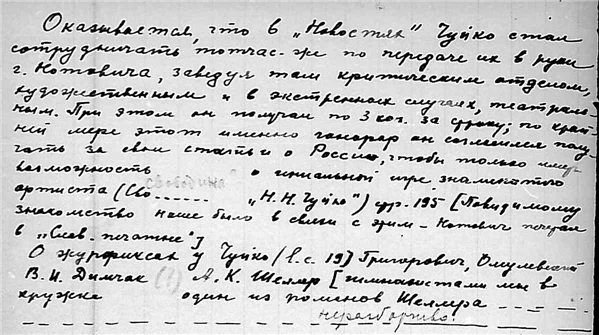 Оказывается, что в „Новостях" Чуйко стал
сотрудничать тотчас-же по передаче их в руки
г. Нотовича, заведуя там критическим отделом,
художественным и в экстренных случаях, театраль-
ным. При этом он получал по 3 коп. за строку; по край-
ней мере этот именно гонорар он согласился полу-
чать за свои статьи о Росси, чтобы только иметь
возможность о гениальной игре знаменитого
свободина
артиста (Сво...... „Н.Н. Чуйко") стр. 195 [Повидимому
знакомство наше было в связи с этим - Нотович печатал
в „Слав. печатне"]
О журфиксах у Чуйко (l.c. 19) Григорович, Омулевский
В.И. Дмитриев (!) А.К. Шеллер [гимназистами мы в
кружке один из романов Шеллера
неразборчиво.